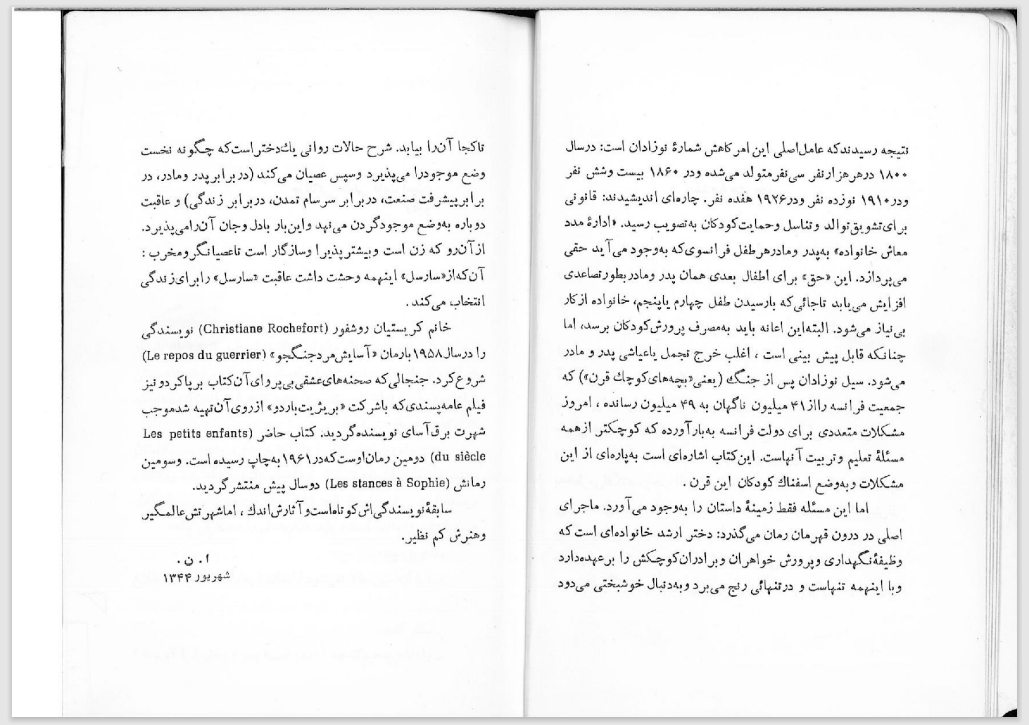 نتیجه رسیدندکه عامل‌اصلی این امرکاهش شمارهٔ نوزادان است: درسال
۱۸۰۰ درهرهزارنفر سی‌نفرمتولد می‌شده ودر ۱۸۶۰ بیست وشش نفر
ودر۱۹۱۰ نوزده نفر ودر۱۹۲۶ هفده نفر. چاره‌ای اندیشیدند: قانونی
برای‌تشویق‌توالد وتناسل وحمایت‌کودکان به‌تصویب رسید. «ادارهٔ مدد
معاش خانواده» به‌پدر ومادرهرطفل فرانسوی‌که به‌وجود می‌آید حقی
می‌پردازد. این «حق» برای اطفال بعدی همان پدر ومادربطورتصاعدی
افزایش می‌یابد تاجائی‌که بارسیدن طفل چهارم یاپنجم، خانواده ازکار
بی‌نیاز می‌شود. البته‌این اعانه باید به‌مصرف پرورش‌کودکان برسد، اما
چنانکه قابل پیش بینی است ، اغلب خرج تجمل یاعیاشی پدر و مادر
می‌شود. سیل نوزادان پس از جنگ (یعنی«بچه‌های‌کوچك قرن») که
جمعیت فرانسه رااز۴۱ میلیون ناگهان به ۴۹ میلیون رسانده ، امروز
مشکلات متعددی برای دولت فرانسه به‌بارآورده که کوچکتر ازهمه
مسئلهٔ تعلیم وتربیت آنهاست. این‌کتاب اشاره‌ای است به‌پاره‌ای از این
مشکلات وبه‌وضع اسفناك کودکان این قرن .
اما این مسئله فقط زمینهٔ داستان را به‌وجود می‌آورد. ماجرای
اصلی در درون قهرمان رمان می‌گذرد: دختر ارشد خانواده‌ای است که
وظیفهٔ‌نگهداری وپرورش خواهران وبرادران‌کوچکش را برعهده‌دارد
وبا اینهمه تنهاست و درتنهائی رنج می‌برد وبه‌دنبال خوشبختی می‌دود
تاکجا آن‌را بیابد. شرح حالات روانی یك‌دختراست‌که چگونه نخست
وضع موجودرا می‌پذیرد وسپس عصیان می‌کند (دربرابرپدر ومادر، در
برابرپیشرفت صنعت، دربرابر سرسام تمدن، دربرابر زندگی) و عاقبت
دوباره به‌وضع موجودگردن می‌نهد واین‌بار بادل وجان آن‌رامی‌پذیرد.
ازآن‌رو که زن است وبیشترپذیرا وسازگار است تاعصیانگرومخرب :
آن‌که‌از«سارسل» اینهمه وحشت داشت عاقبت «سارسل» رابرای‌زندگی
انتخاب می‌کند .
خانم کریستیان روشفور (Christiane Rochefort) نویسندگی
را درسال۱۹۵۸ بارمان «آسایش‌مردجنگجو» (Le repos du guerrier)
شروع‌کرد. جنجالی‌که صحنه‌های‌عشقی‌بی‌پروای‌آن‌کتاب برپاکردونیز
فیلم عامه‌پسندی‌که باشرکت «بریژیت‌باردو» ازروی‌آن‌تهیه شدموجب
شهرت برق‌آسای نویسنده‌گردید. کتاب حاضر (Les petits enfants
du siècle) دومین رمان‌اوست‌که‌در۱۹۶۱ به‌چاپ رسیده است. وسومین
رمانش (Les stances à Sophie) دوسال پیش منتشرگردید.
سابقهٔ‌نویسندگی‌اش‌کوتاه‌است‌وآثارش‌اندك ، اماشهرتش‌عالمگیر
وهنرش کم نظیر.
ا. ن.
شهریور ۱۳۴۴